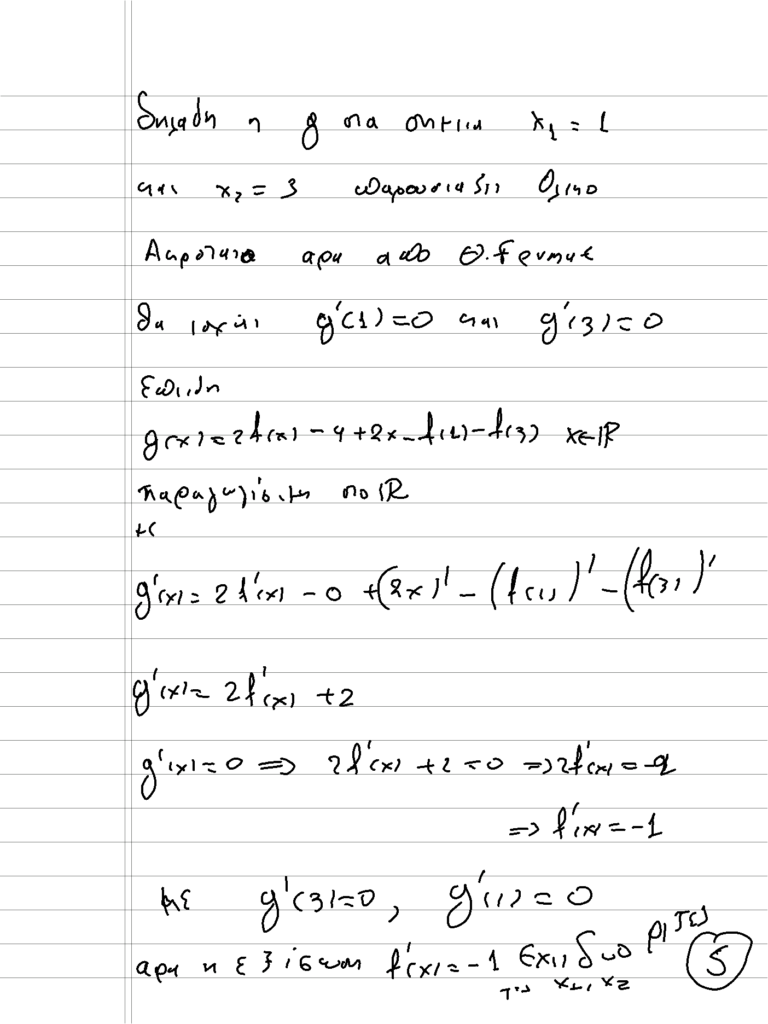 δηλαδή η g στα σημεία x₁ = 1
και x₂ = 3 παρουσιάζει ολικό
Ακρότατο άρα από Θ. Fermat
θα ισχύει g'(1)=0 και g'(3)=0
Επειδή
g(x)=2f(x)-4+2x-f(1)-f(3) x∈ℝ
παραγωγίσιμη στο ℝ
με
g'(x)=2f'(x)-0+(2x)'-(f(1))'-(f(3))'
g'(x)=2f'(x)+2
g'(x)=0 ⇒ 2f'(x)+2=0 ⇒ 2f'(x)=-2
⇒ f'(x)=-1
με g'(3)=0, g'(1)=0
άρα η εξίσωση f'(x)=-1 έχει δυο ρίζες
τις x₁, x₂
5